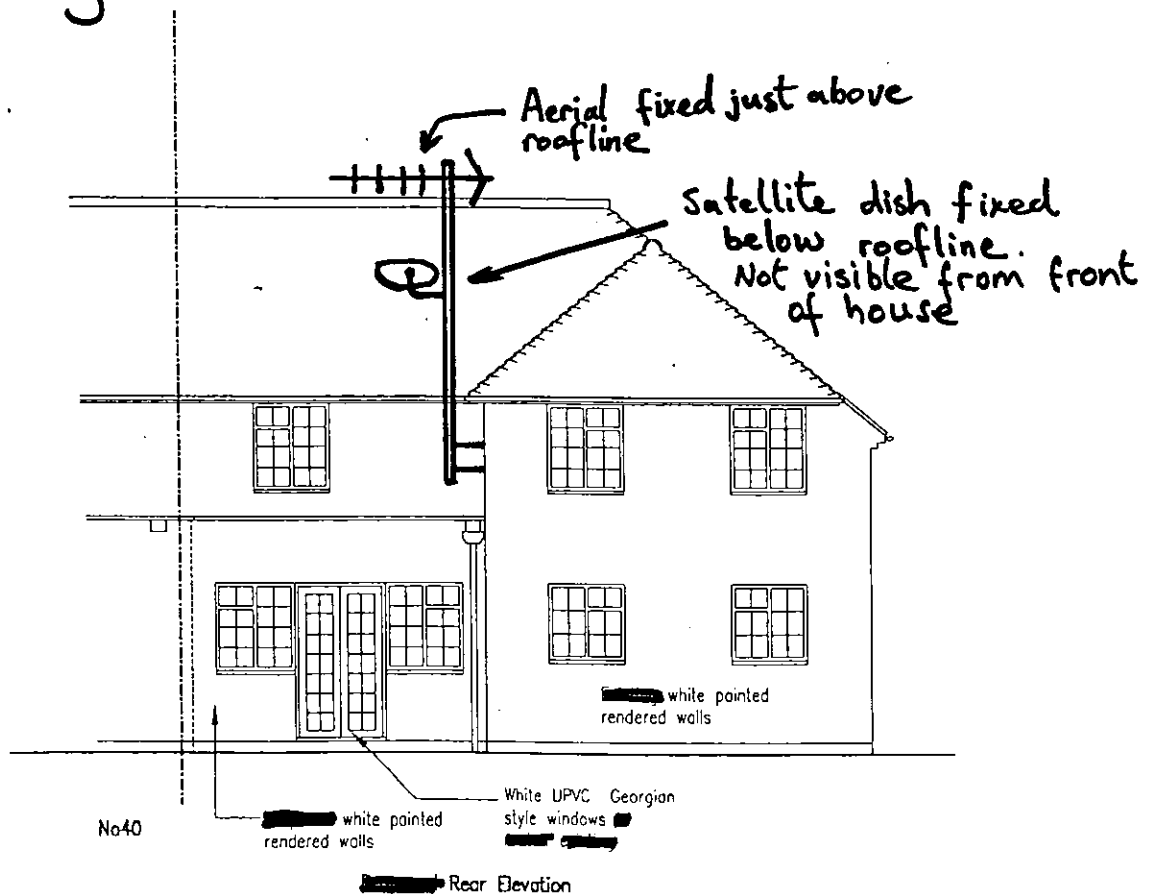 Aerial fixed just above
roofline
Satellite dish fixed
below roofline.
Not visible from front
of house
white painted
rendered walls
White UPVC Georgian
style windows
No40
white painted
rendered walls
Rear Elevation